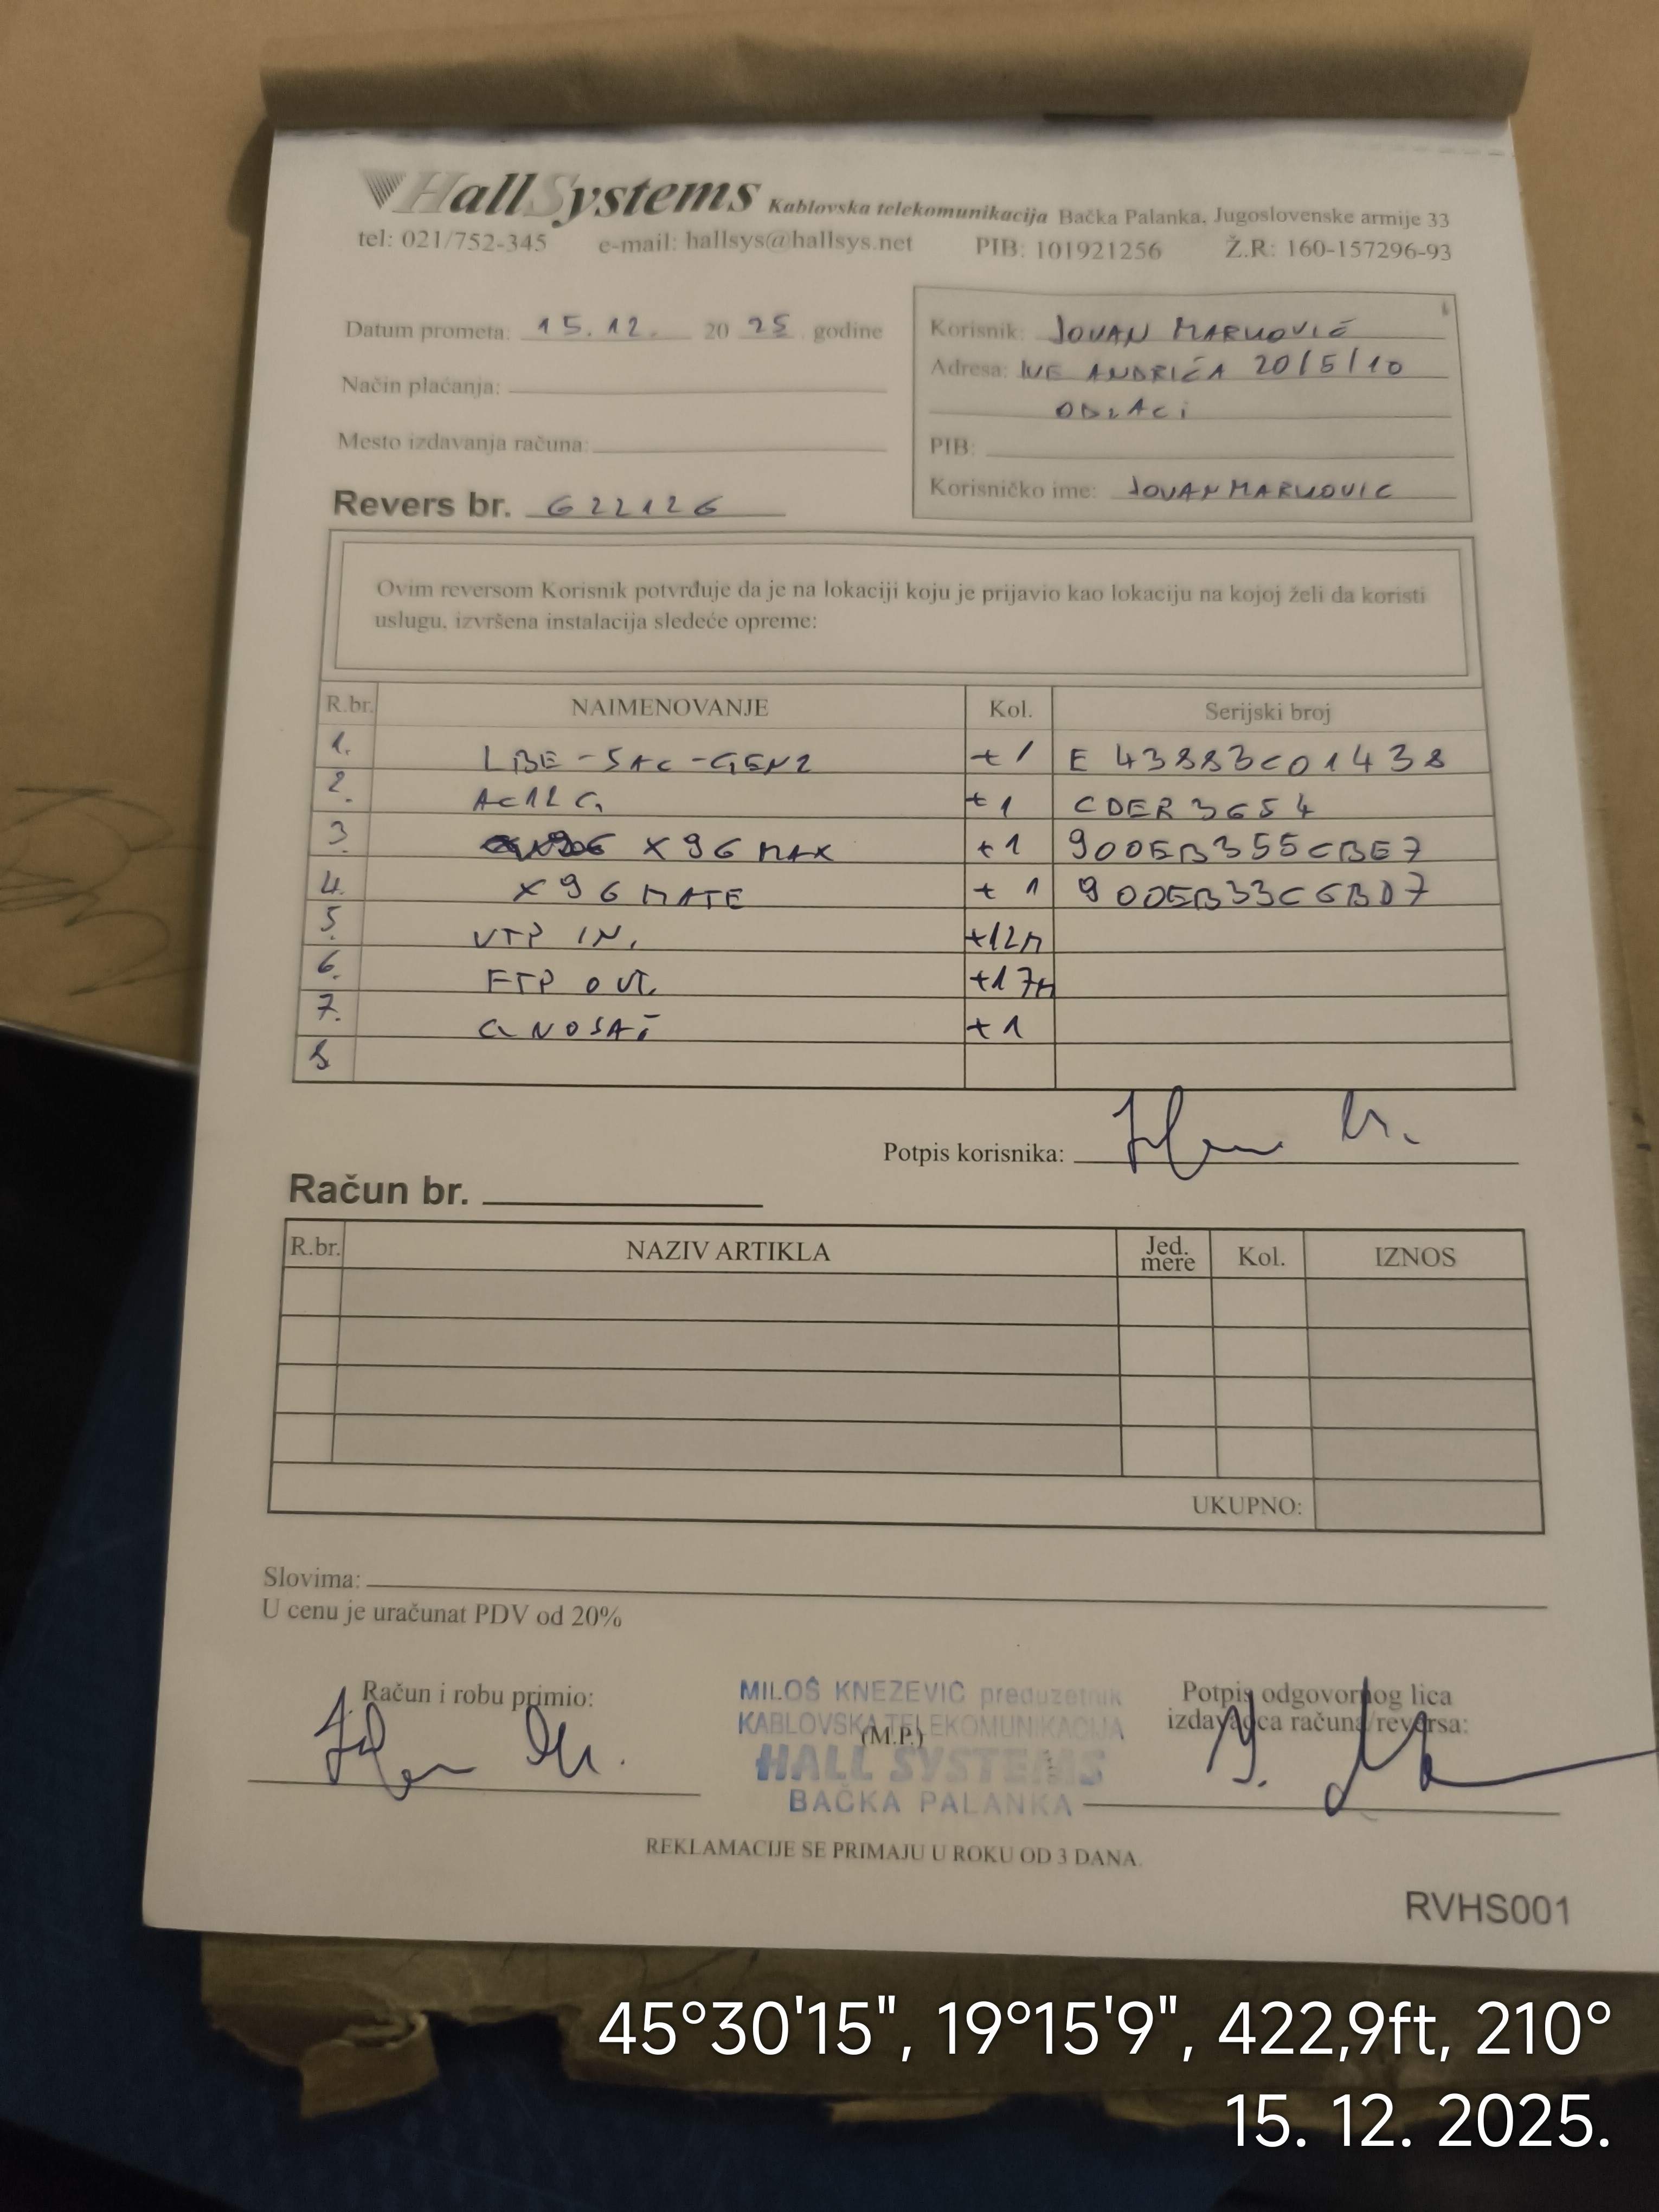 HallSystems Kablovska telekomunikacija Bačka Palanka, Jugoslovenske armije 33
tel: 021/752-345 e-mail: hallsys@hallsys.net PIB: 101921256 Ž.R: 160-157296-93
Datum prometa: 15.12. 20 25 godine
Način plaćanja:
Mesto izdavanja računa:
Revers br. 622126
Korisnik: JOVAN MARKOVIĆ
Adresa: IVE ANDRIĆA 20/5/10
ODŽACI
PIB:
Korisničko ime: JOVANMARKOVIC
Ovim reversom Korisnik potvrđuje da je na lokaciji koju je prijavio kao lokaciju na kojoj želi da koristi
uslugu, izvršena instalacija sledeće opreme:
R.br. NAIMENOVANJE Kol. Serijski broj
1. LBE-5AC-GEN2 +1 E43883C01438
2. AC12G +1 CDER3654
3 X96 MAX +1 900EB355CBE7
4. X96 MATE +1 900EB33C6BD7
5. UTP IN. +12M
6. FTP OUT. +17M
7. NOSAČ +1
8
Potpis korisnika:
Račun br.
R.br. NAZIV ARTIKLA Jed. mere Kol. IZNOS
UKUPNO:
Slovima:
U cenu je uračunat PDV od 20%
Račun i robu primio:
MILOŠ KNEZEVIĆ preduzetnik
KABLOVSKA TELEKOMUNIKACIJA
(M.P.)
HALL SYSTEMS
BAČKA PALANKA
Potpis odgovornog lica
izdavaoca računa/reversa:
REKLAMACIJE SE PRIMAJU U ROKU OD 3 DANA.
RVHS001
45°30'15", 19°15'9", 422,9ft, 210°
15. 12. 2025.